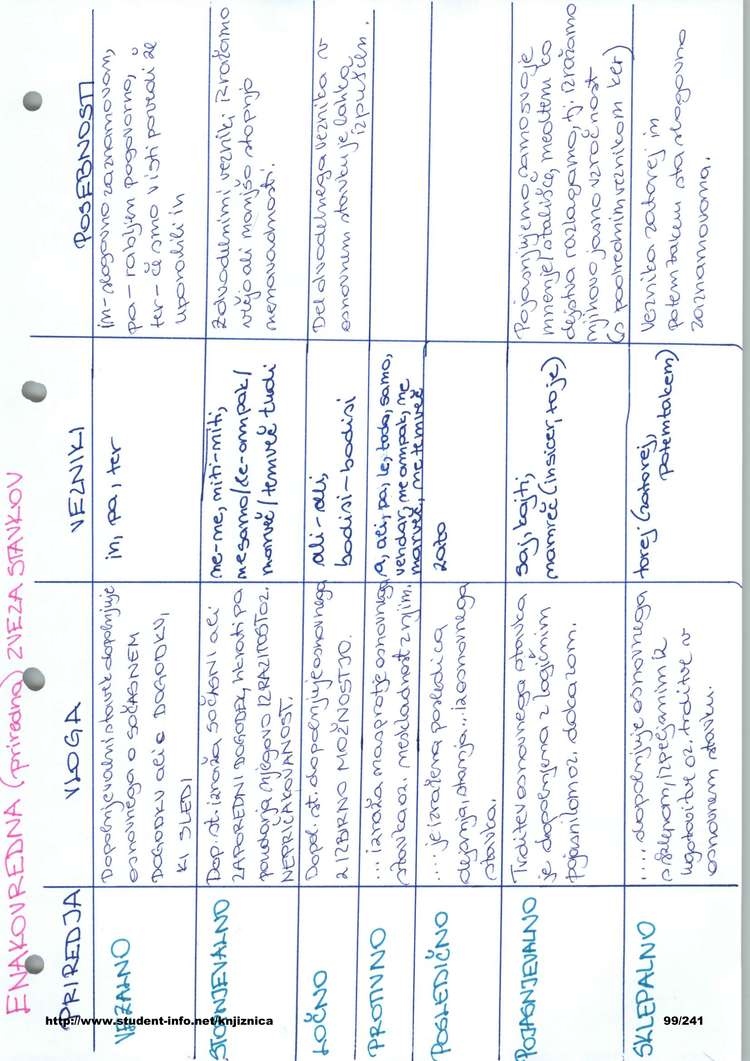 ENAKOVREDNA (priredna) ZVEZA STAVKOV
PRIREDJA
VLOGA
VEZNIKI
POSEBNOSTI
VEZALNO
Dopolnjevalni stavek dopolnjuje
osnovnega o SOČASNEM
DOGODKU ali o DOGODKU,
KI SLEDI
in, pa, ter
in - slogovno zaznamovan,
pa - rabljen pogovorno,
ter - če smo v isti povedi že
uporabili in
STOPNJEVALNO
Dop. st. izraža SOČASNI ali
ZAPOREDNI DOGODEK, hkrati pa
poudarja njegovo IZRAZITOST oz.
NEPRIČAKOVANOST.
ne-ne, niti-niti,
ne samo/le-ampak/
marveč/temveč tudi
Z dvodelnimi vezniki izražamo
višjo ali manjšo stopnjo
nenavadnosti.
LOČNO
Dopol. st. dopolnjuje osnovnega
z IZBIRNO MOŽNOSTJO.
ali-ali,
bodisi-bodisi
Del dvodelnega veznika v
osnovnem stavku je lahko
izpuščen.
PROTIVNO
... izraža nasprotje osnovnega
stavka oz. neskladnost z njim.
a, ali, pa, le, toda, samo,
vendar, ne ampak, ne
marveč, ne temveč
POSLEDIČNO
.... je izražena posledica
dejanja, stanja... iz osnovnega
stavka.
zato
POJASNJEVALNO
Trditev osnovnega stavka
je dopolnjena z logičnim
pojasnilom oz. dokazom.
saj, kajti,
namreč (in sicer, to je)
Pojasnjujemo samo svoje
mnenje/stališče, medtem ko
dejstva razlagamo, tj. izražamo
njihovo jasno vzročnost
(s podrednim veznikom ker)
SKLEPALNO
.... dopolnjuje osnovnega
s sklepom, izpeljanim iz
ugotovitve oz. trditve v
osnovnem stavku.
torej (zatorej,
potemtakem)
Veznika zatorej in
potemtakem sta slogovno
zaznamovana.
http://www.student-info.net/knjiznica
99/241